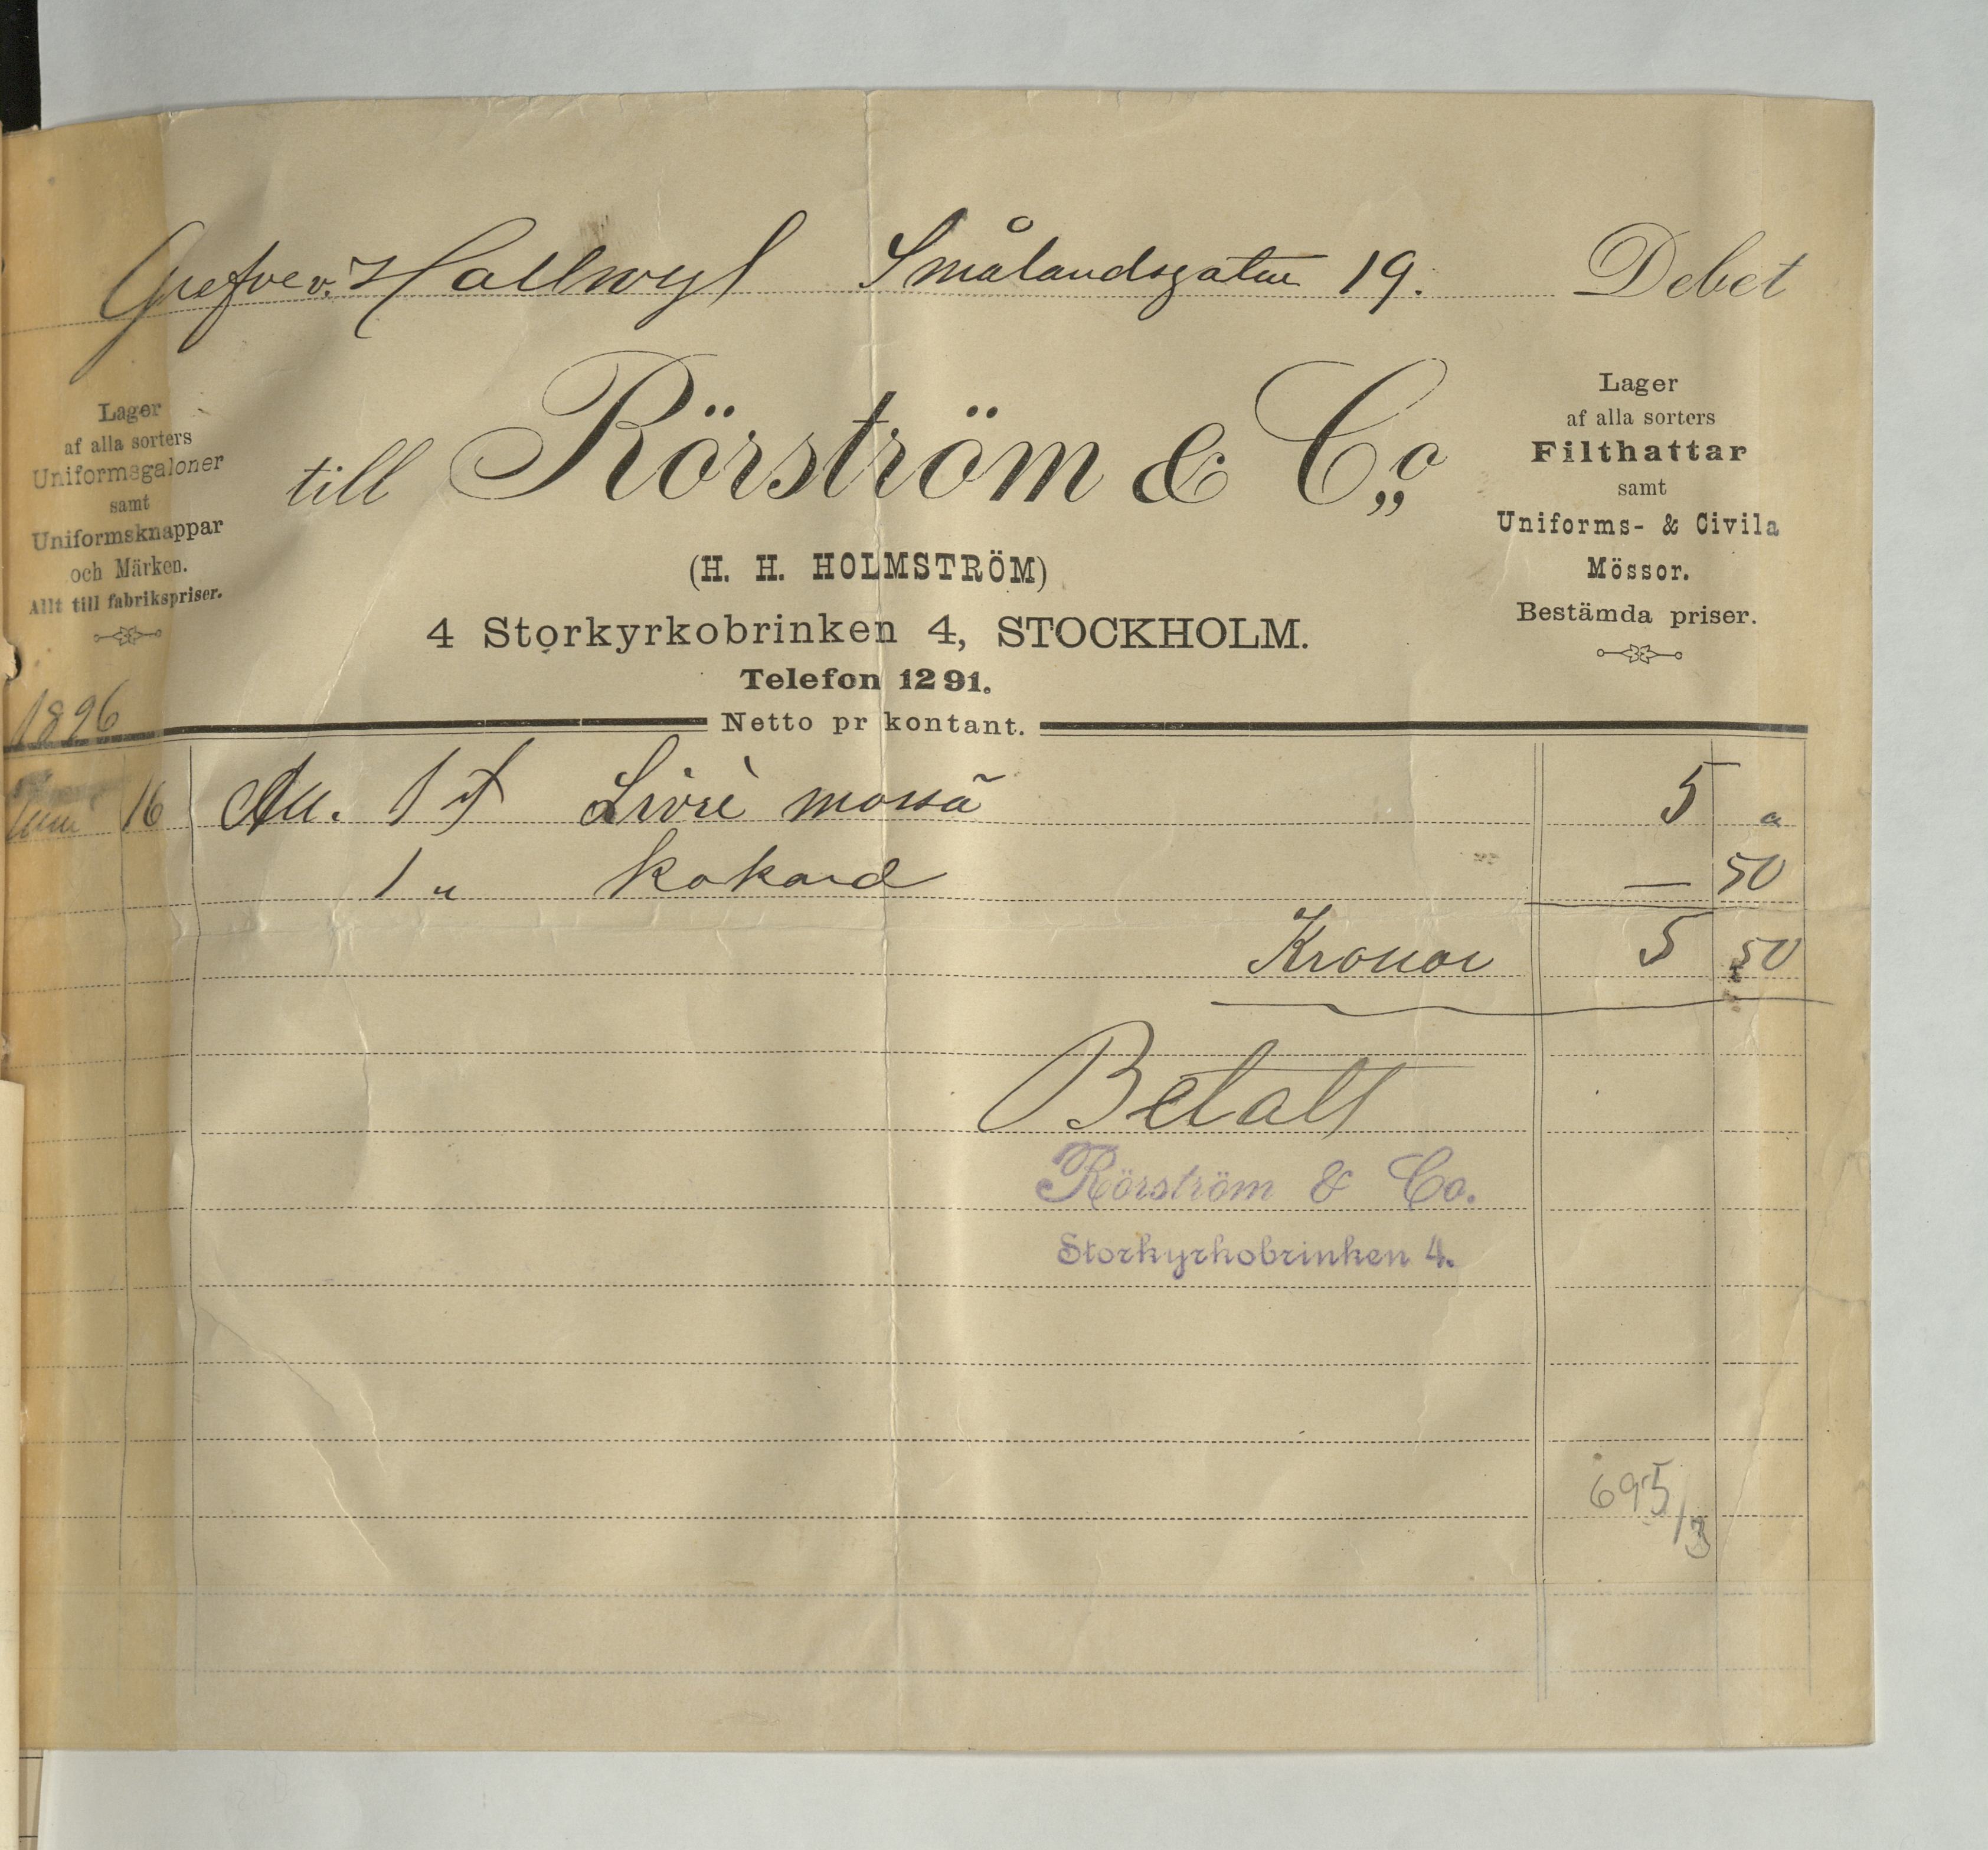 Grefve v. Hallwyl Smålandsgatan 19. Debet
till Rörström & Co
(H. H. HOLMSTRÖM)
4 Storkyrkobrinken 4, STOCKHOLM.
Telefon 1291.
Netto pr kontant.
Lager
af alla sorters
Uniformsgaloner
samt
Uniformsknappar
och Märken.
Allt till fabrikspriser.
Lager
af alla sorters
Filthattar
samt
Uniforms- & Civila
Mössor.
Bestämda priser.
1896
Juni 16 1 st Livré mössa 5 "
1 " kokard — 50
Kronor 5 50
Betalt
Rörström & Co.
Storkyrkobrinken 4.
695/3